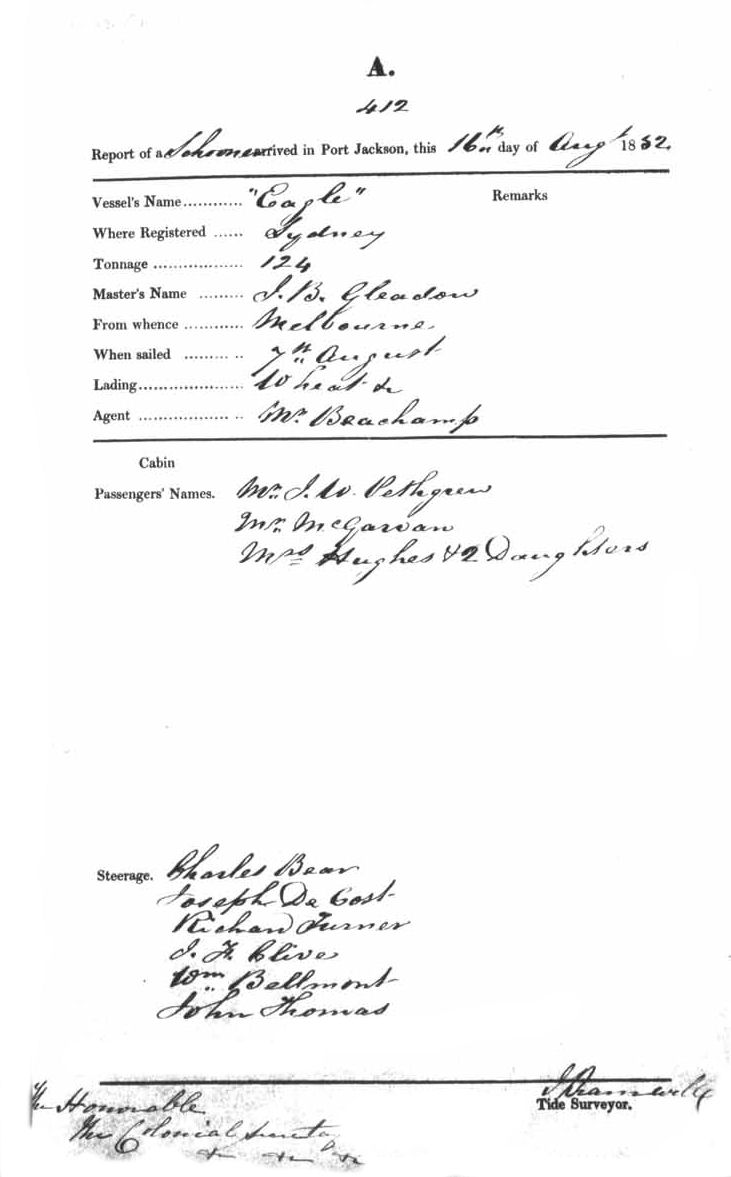 A.
412
Report of a Schooner arrived in Port Jackson, this 16th day of Augt 1852.
Vessel's Name ............ "Eagle" Remarks
Where Registered ...... Sydney
Tonnage .................. 124
Master's Name ......... J. B. Gleadow
From whence ............ Melbourne.
When sailed ......... .. 7th August
Lading..................... Wheat &c
Agent .................. .. Mr. Beachamp
Cabin
Passengers' Names. Mr. J. W. Pethgrew
Mr. McGarvan
Mrs Hughes & 2 Daughters
Steerage. Charles Bear
Joseph De Cost
Richard Turner
J. F. Clive
Wm Bellmont
John Thomas
Tide Surveyor.
The Honorable
The Colonial Secretary
&c &c &c